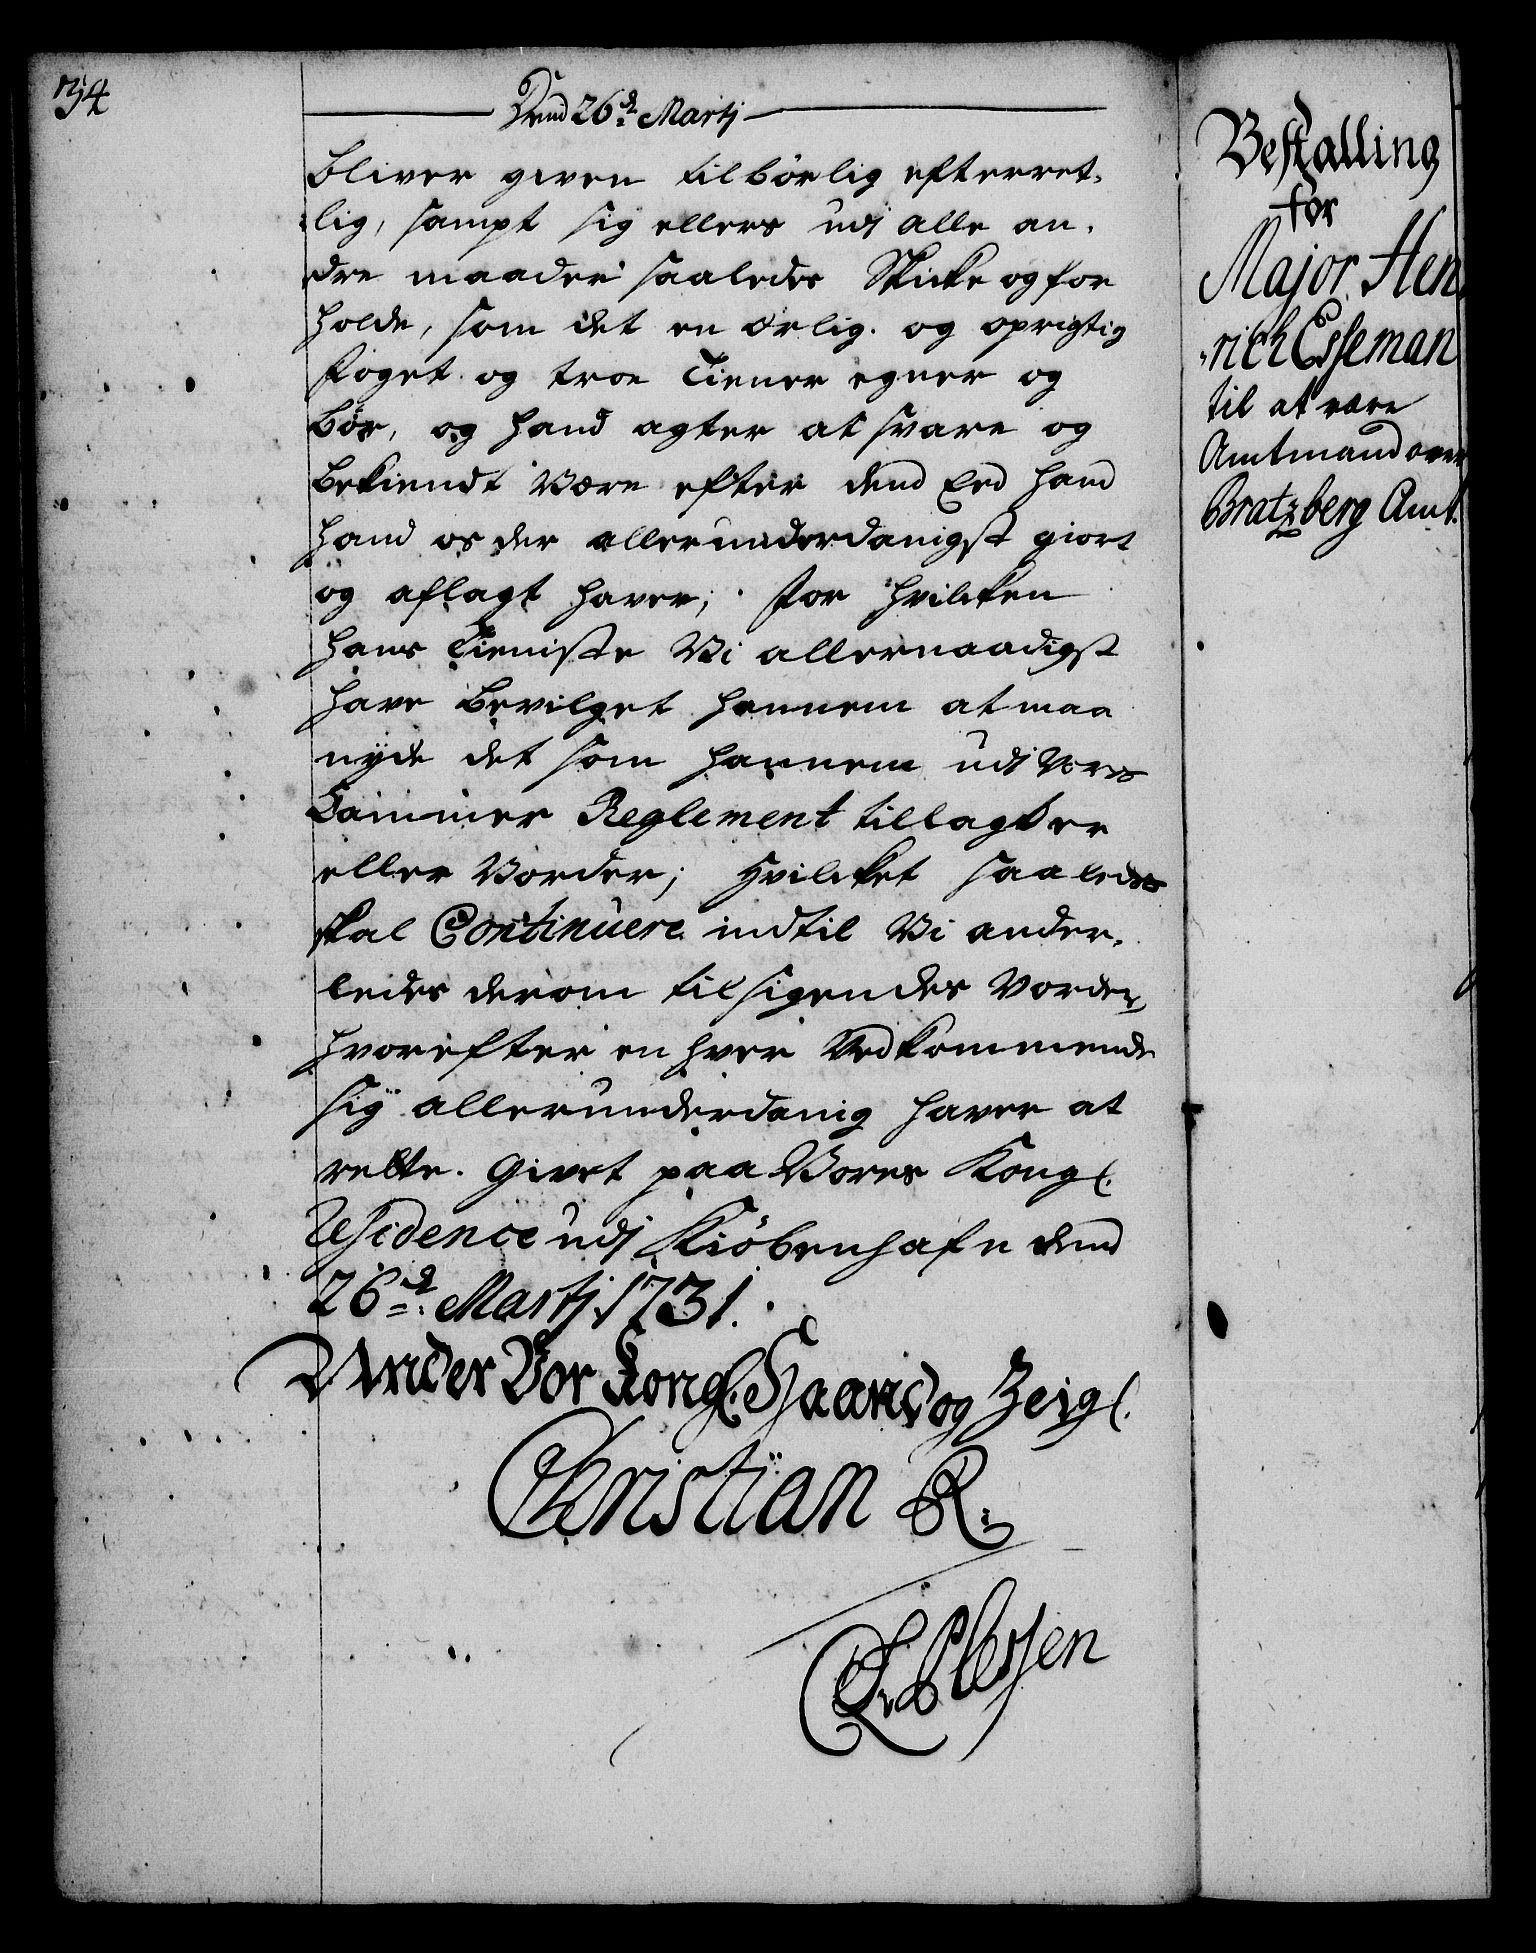 34
Dend 26de Martj
bliver given tilbörlig efterret-
lig, sampt sig ellers udj alle an-
dre maader saaledes Skicke og for
holde, som det en ærlig og oprigtig
foget og troe Tiener egner og
bör, og hand agter at svare og
bekiendt være efter dend Eed hand
hand os der allerunderdanigst giort
og aflagt haver; for hvilcken
hans Tieniste Vi allernaadigst
have bevilget hannem at maa
nyde det som hannem udj Vores
Cammer Reglement tillagt er
eller vorder; hvilcket saaledes
skal Continuere indtil Vi ander-
ledes derom tilsigendes vorder,
hvorefter en hver Vedkommende
sig allerunderdanig haver at
rette. Givet paa Vores Kongl.
Residence udj Kiöbenhafn dend
26de Martj 1731.
Under Vor Kongl. Haand og Zeigl.
Christian R.
Plessen
Bestalling
for
Major Hen-
rich Esseman
til at være
Amtmand over
Bratzberg Amt.